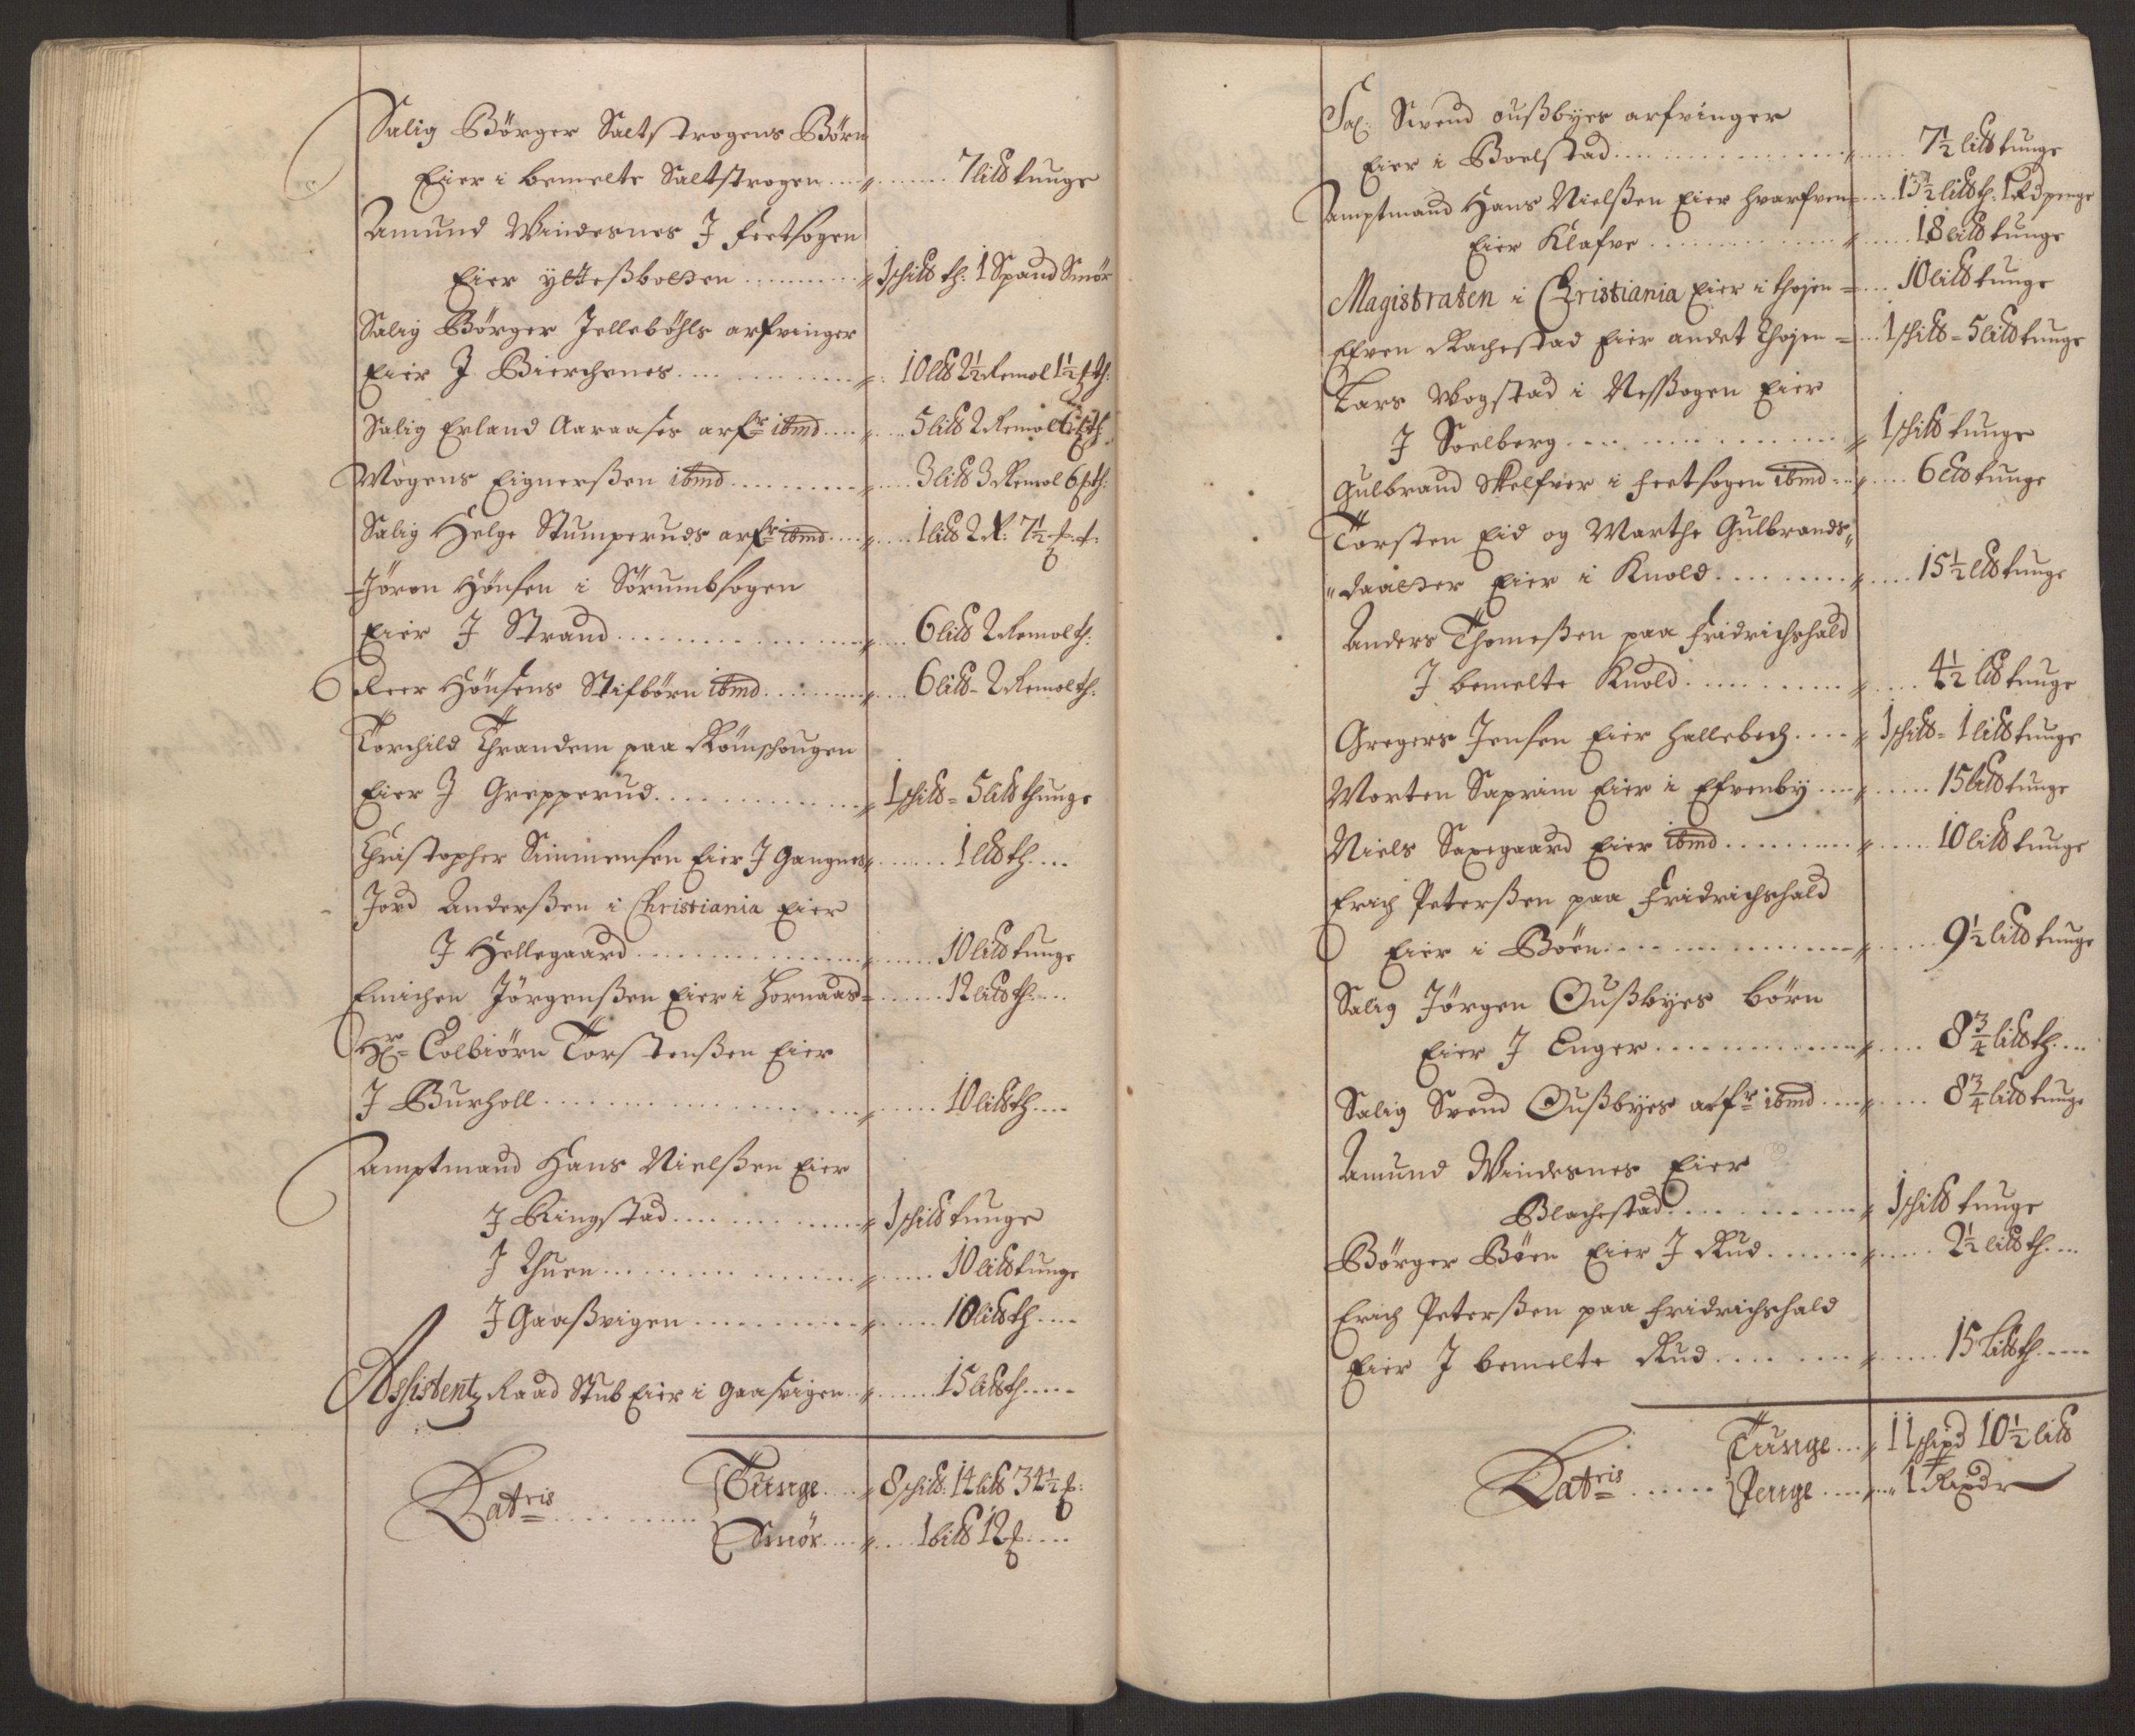 Salig Börger Saltstrogens Börn
Eier i bemelte Saltstrogen .... 7 lild tunge
Amund Windesnes J feetsogen
Eier ytteßbolsen .... 1 schild th: 1 Spand Smör
Salig Börger Jelleböhls arfvinger
Eier J Bierchenes .... 10 lld 2½ Remol 1½ th:
Salig Erland Aaraases arfr ibmd .... 5 lild 2 Remol
Mogens Eignerßen ibmd .... 3 lild 3 Remol 6 th:
Salig Helge Stumperuds arfr ibmd .... 1 lild 2 R: 7½
Jöron Hönsen i Sörumbsogen
Eier J Strand .... 6 lild 2 Remol th:
Peer Hönsens Stifbörn ibmd .... 6 lild - 2 Remol th:
Torchild Thrandem paa Römschougen
Eier J Grepperud .... 1 schild = 5 lild thunge
Christopher Simmensen Eier J Gangnes .... 1 lld th ....
Jord Anderßen i Christiania Eier
J Hellegaard .... 10 lild tunge
Emichen Jörgenßen Eier i Hornaas = .... 12 lild th ....
Hr= Colbiörn Torstenßen Eier
J Burholl .... 10 lild th ....
Amptmand Hans Nielßen Eier
J Ringstad .... 1 schild tunge
J Thuen .... 10 lild tunge
J Gaaßvigen .... 10 lild th ....
Assistentz Raad Stub Eier i Gaasvigen .... 15 lild th ....
Latris .... Tunge .... 8 schild: 14 lild 34½
Smör .... 1 bild 12 ....
Sal: Svend oußbyes arfvinger
Eier i Boelstad .... 7½ lild tunge
Amptmand Hans Nielßen Eier hvarfven = .... 13½ lild th: 1 Rd penge
Eier Klafve .... 18 lild tunge
Magistraten i Christiania Eier i thojen = .... 10 lild tunge
Efven Rachestad Eier andet Thojen = .... 1 schild = 5 lild tunge
Lars Vogstad i Neßsogen Eier
J Soelberg .... 1 schild tunge
Gulbrand Skelfver i feetsogen ibmd .... 6 lld tunge
Torsten Eid og Marthe Gulbrands„
„daatter Eier i Knold .... 15½ lld tunge
Anders Thomeßen paa fridrichshald
J bemelte Knold .... 4½ lld tunge
Gregers Jensen Eier Hallebech .... 1 schild = 1 lild tunge
Morten Sapraim Eier i Efvenby .... 15 lild tunge
Niels Saxegaard Eier ibmd .... 10 lild tunge
Erich Peterßen paa Fridrichshald
Eier i Böen .... 9½ lild tunge
Salig Jörgen Oußbyes börn
Eier J Enger .... 8¾ lild th ....
Salig Svend Oußbyes arfr ibmd .... 8¾ lild tunge
Amund Windesnes Eier
Blachestad .... 1 schild tunge
Börger Böen Eier J Rud .... 2½ lild th ....
Erich Peterßen paa fridrichshald
Eier J bemelte Rud .... 15 lild th ....
Latris .... Tunge .... 11 schpd 10½ lild
Penge .... 1 Rixdr